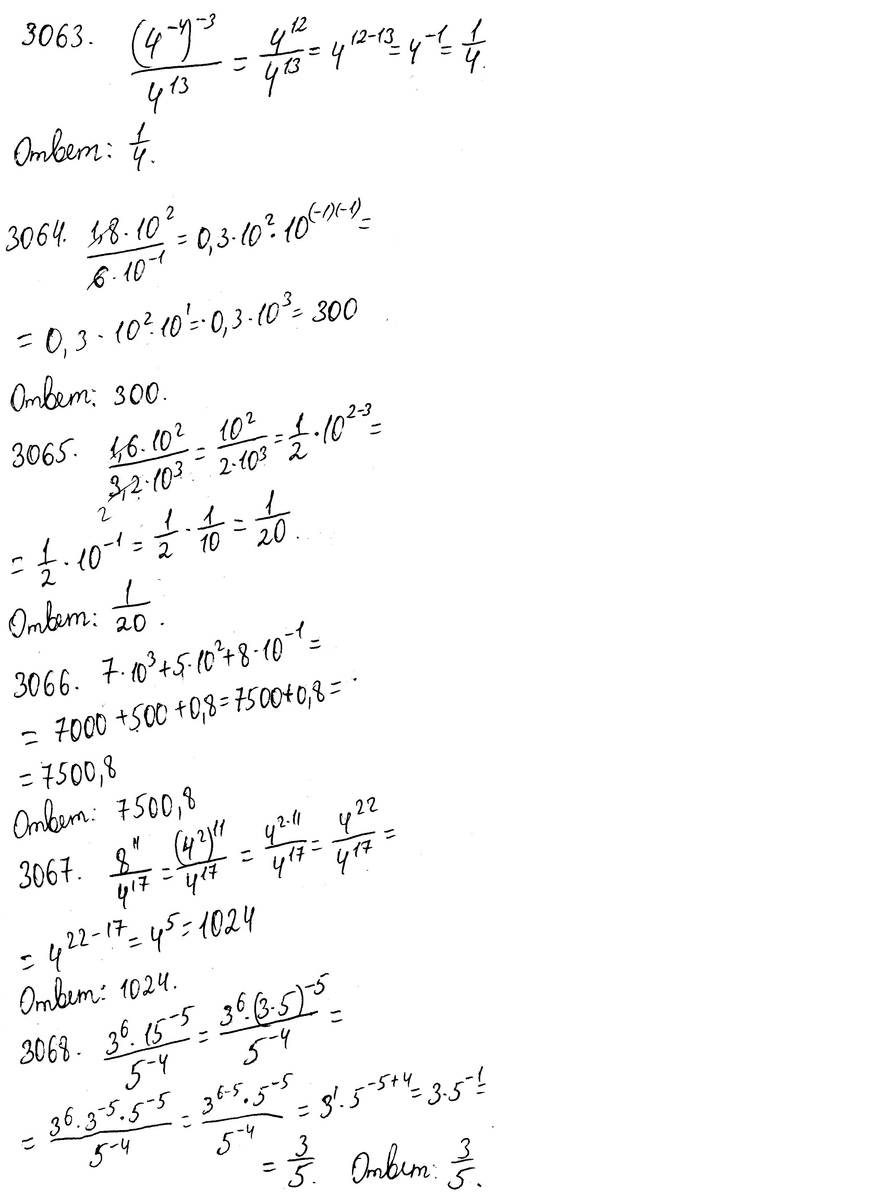 3063. (4⁻⁴)⁻³ / 4¹³ = 4¹² / 4¹³ = 4¹²⁻¹³ = 4⁻¹ = 1/4.
Ответ: 1/4.
3064. 1,8 · 10² / 6 · 10⁻¹ = 0,3 · 10² · 10⁽⁻¹⁾⁽⁻¹⁾ =
= 0,3 · 10² · 10¹ = 0,3 · 10³ = 300
Ответ: 300.
3065. 1,6 · 10² / 3,2 · 10³ = 10² / 2 · 10³ = 1/2 · 10²⁻³ =
2
= 1/2 · 10⁻¹ = 1/2 · 1/10 = 1/20.
Ответ: 1/20.
3066. 7 · 10³ + 5 · 10² + 8 · 10⁻¹ =
= 7000 + 500 + 0,8 = 7500 + 0,8 =
= 7500,8
Ответ: 7500,8
3067. 8¹¹ / 4¹⁷ = (4²)¹¹ / 4¹⁷ = 4²·¹¹ / 4¹⁷ = 4²² / 4¹⁷ =
= 4²²⁻¹⁷ = 4⁵ = 1024
Ответ: 1024.
3068. 3⁶ · 15⁻⁵ / 5⁻⁴ = 3⁶ · (3 · 5)⁻⁵ / 5⁻⁴ =
= 3⁶ · 3⁻⁵ · 5⁻⁵ / 5⁻⁴ = 3⁶⁻⁵ · 5⁻⁵ / 5⁻⁴ = 3¹ · 5⁻⁵⁺⁴ = 3 · 5⁻¹ =
= 3/5. Ответ: 3/5.